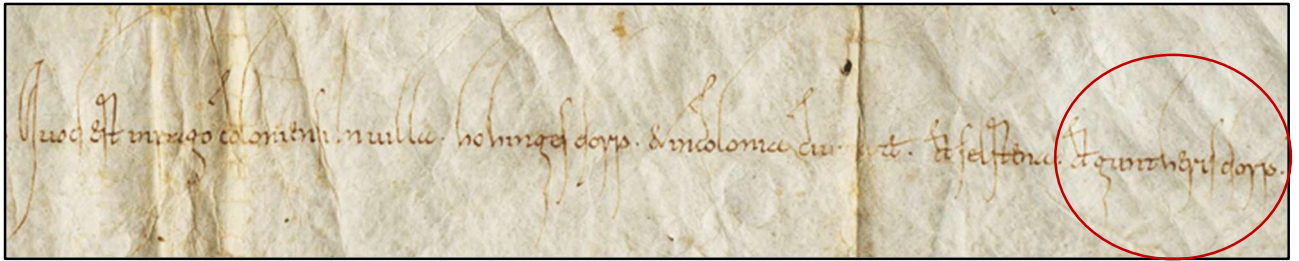 Quod est in pago coloniensi. in uilla. holungesdorp. & in colonia ciui et selstena. et guntherisdorp.